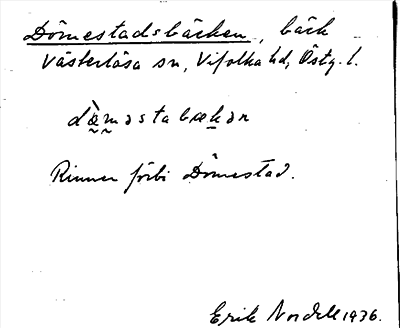 Dömestadsbäcken, bäck
Västerlösa sn, Vifolka hd, Östg. l.
dæ̀məstabækən
Rinner förbi Dömestad.
Erik Nordell 1936.